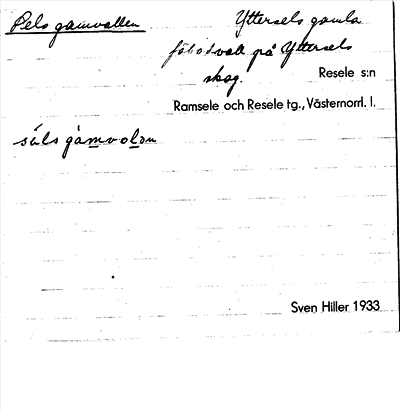 Pels gamvallen
Yttersels gamla
fäbodvall på Yttersels
skog.
Resele s:n
Ramsele och Resele tg., Västernorrl. l.
gàmvoləm
Sven Hiller 1933